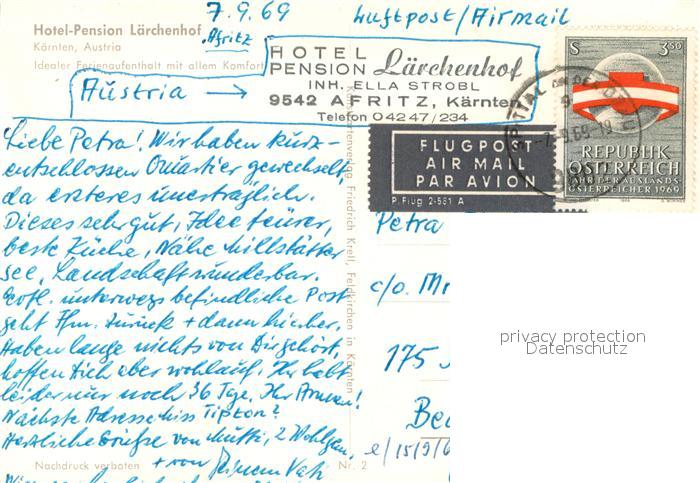 7.9.69
Luftpost/Airmail
Hotel-Pension Lärchenhof
Afritz
Kärnten, Austria
Idealer Ferienaufenthalt mit allem Komfort
Austria →
HOTEL
PENSION Lärchenhof
INH. ELLA STROBL
9542 AFRITZ, Kärnten
Telefon 0 42 47 / 234
S 3.50
REPUBLIK
ÖSTERREICH
JAHR DER AUSLANDS-
ÖSTERREICHER 1969
FLUGPOST
AIR MAIL
PAR AVION
P. Flug 2-581 A
Liebe Petra! Wir haben kurz-
entschlossen Quartier gewechselt,
da ersteres unerträglich.
Dieses sehr gut,
beste Küche, Nähe Millstätter
see, Landschaft wunderbar.
Evtl. unterwegs befindliche Post
geht Ihm. zurück + dann hierher.
Haben lange nichts von Dir gehört,
hoffen Dich aber wohlauf. Ihr habt
leider nur noch 36 Tage, Ihr Armen!
Nächste Adresse Miss Tipton?
Herzliche Grüsse von Mutti, 2
+ von Deinem Vati
Petra
c/o. Mr
175
Be
Kunstverlag Friedrich Krell, Feldkirchen in Kärnten
Nachdruck verboten
Nr. 2
privacy protection
Datenschutz